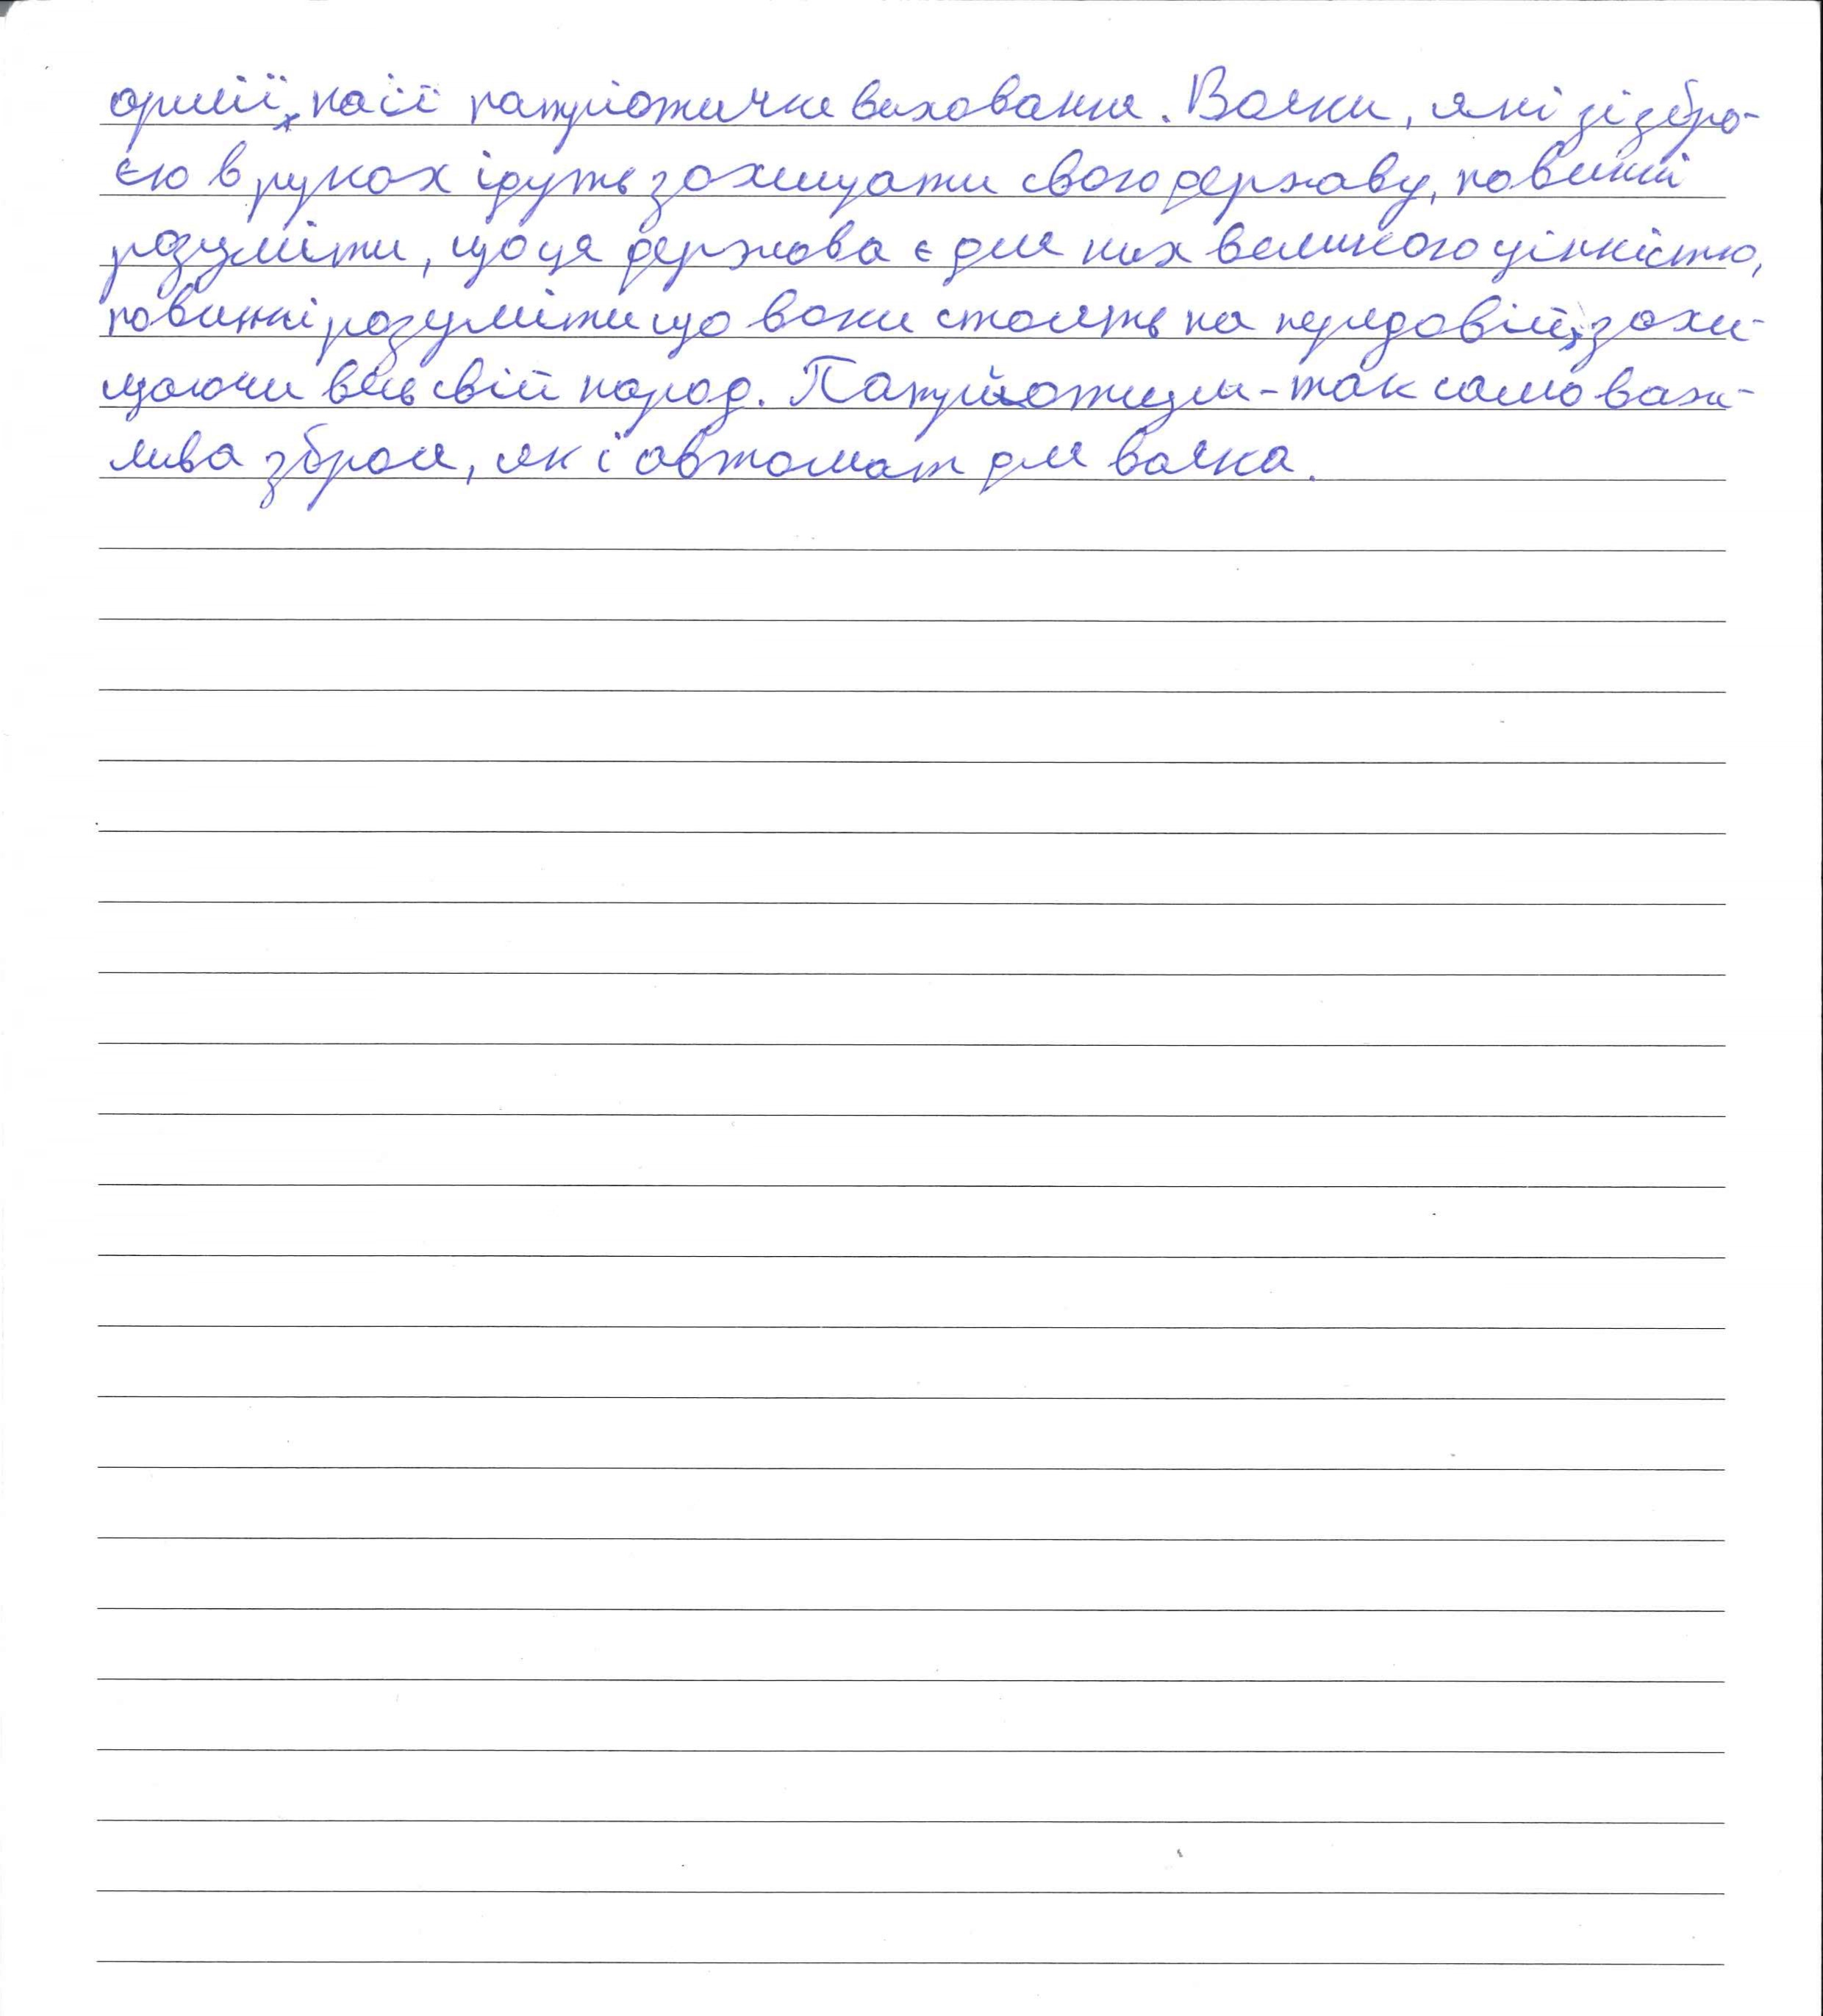 армії, на її патріотичне виховання. Вояки, які зі збро-
єю в руках ідуть захищати свою державу, повинні
розуміти, що ця держава є для них великою цінністю,
повинні розуміти що вони стоять на передовій, захи-
щаючи весь свій народ. Патриотизм - так само важ-
лива зброя, як і автомат для вояка.